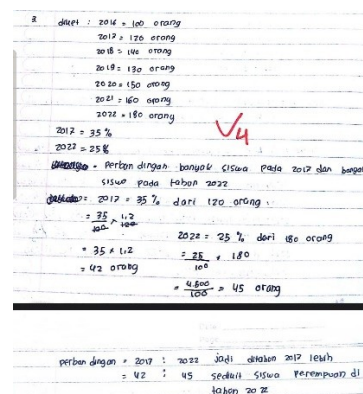 3. diket : 2016 = 100 orang
2017 = 120 orang
2018 = 140 orang
2019 = 130 orang
2020 = 150 orang
2021 = 160 orang
2022 = 180 orang
2017 = 35 %
2022 = 25 %
√4
= Perbandingan banyak siswa pada 2017 dan
siswa pada tahun 2022
= 2017 = 35 % dari 120 orang.
= 35/100 × 1,2
2022 = 25 % dari 180 orang
= 35 × 1,2
= 25/100 × 180
= 42 orang
= 4.500/100 = 45 orang
perbandingan = 2017 : 2022 jadi ditahun 2017 lebih
= 42 : 45 sedikit siswa perempuan di
tahun 2022